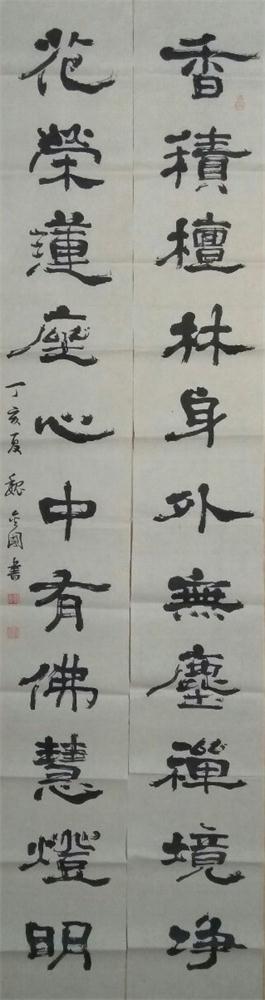 香積檀林身外無塵禪境净
花榮蓮座心中有佛慧燈明
丁亥夏 魏金國書